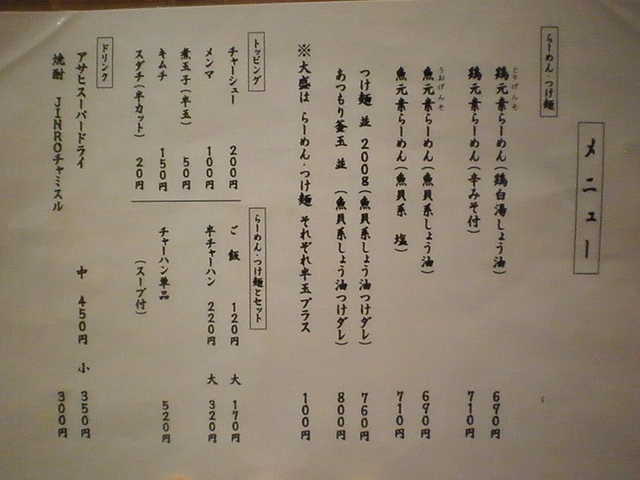 メニュー
らーめん・つけ麺
とりげんそ
鶏元素らーめん（鶏白湯しょう油） 690円
鶏元素らーめん（辛みそ付） 710円
うおげんそ
魚元素らーめん（魚貝系しょう油） 690円
魚元素らーめん（魚貝系 塩） 710円
つけ麺 並 200g（魚貝系しょう油つけダレ） 760円
あつもり釜玉 並 （魚貝系しょう油つけダレ） 800円
※大盛は らーめん・つけ麺 それぞれ半玉プラス 100円
トッピング
チャーシュー 200円
メンマ 100円
煮玉子（半玉） 50円
キムチ 150円
スダチ（半カット） 20円
らーめん・つけ麺とセット
ご飯 120円 大 170円
半チャーハン 220円 大 320円
チャーハン単品 520円
（スープ付）
ドリンク
アサヒスーパードライ 中 450円 小 350円
焼酎 JINROチャミスル 300円